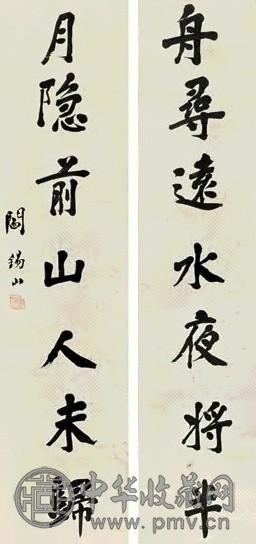 舟尋遠水夜将半
月隐前山人未歸
閻錫山
中华收藏网
www.pmv.cn